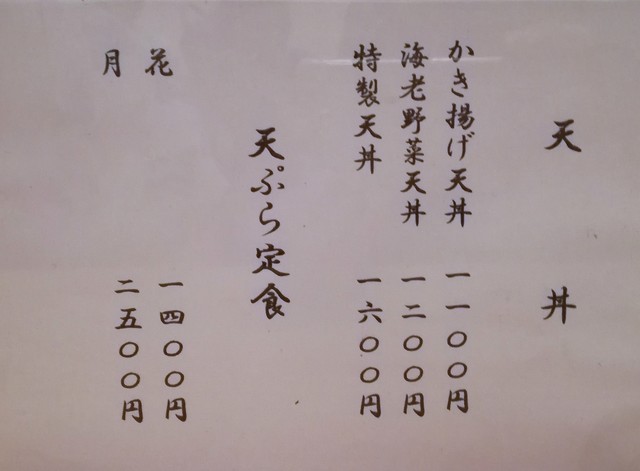 天丼
かき揚げ天丼 一一〇〇円
海老野菜天丼 一二〇〇円
特製天丼 一六〇〇円
天ぷら定食
花 一四〇〇円
月 二五〇〇円